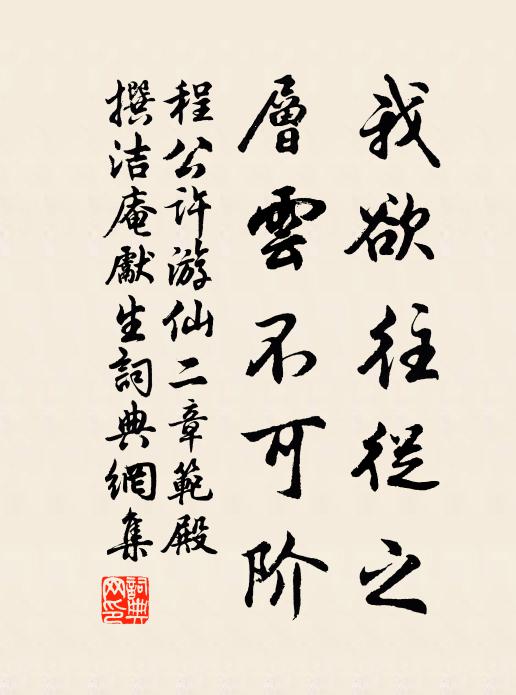 我欲往從之
層雲不可阶
程公许游仙二章範殿
撰洁庵獻生詞典網集
詞典网印